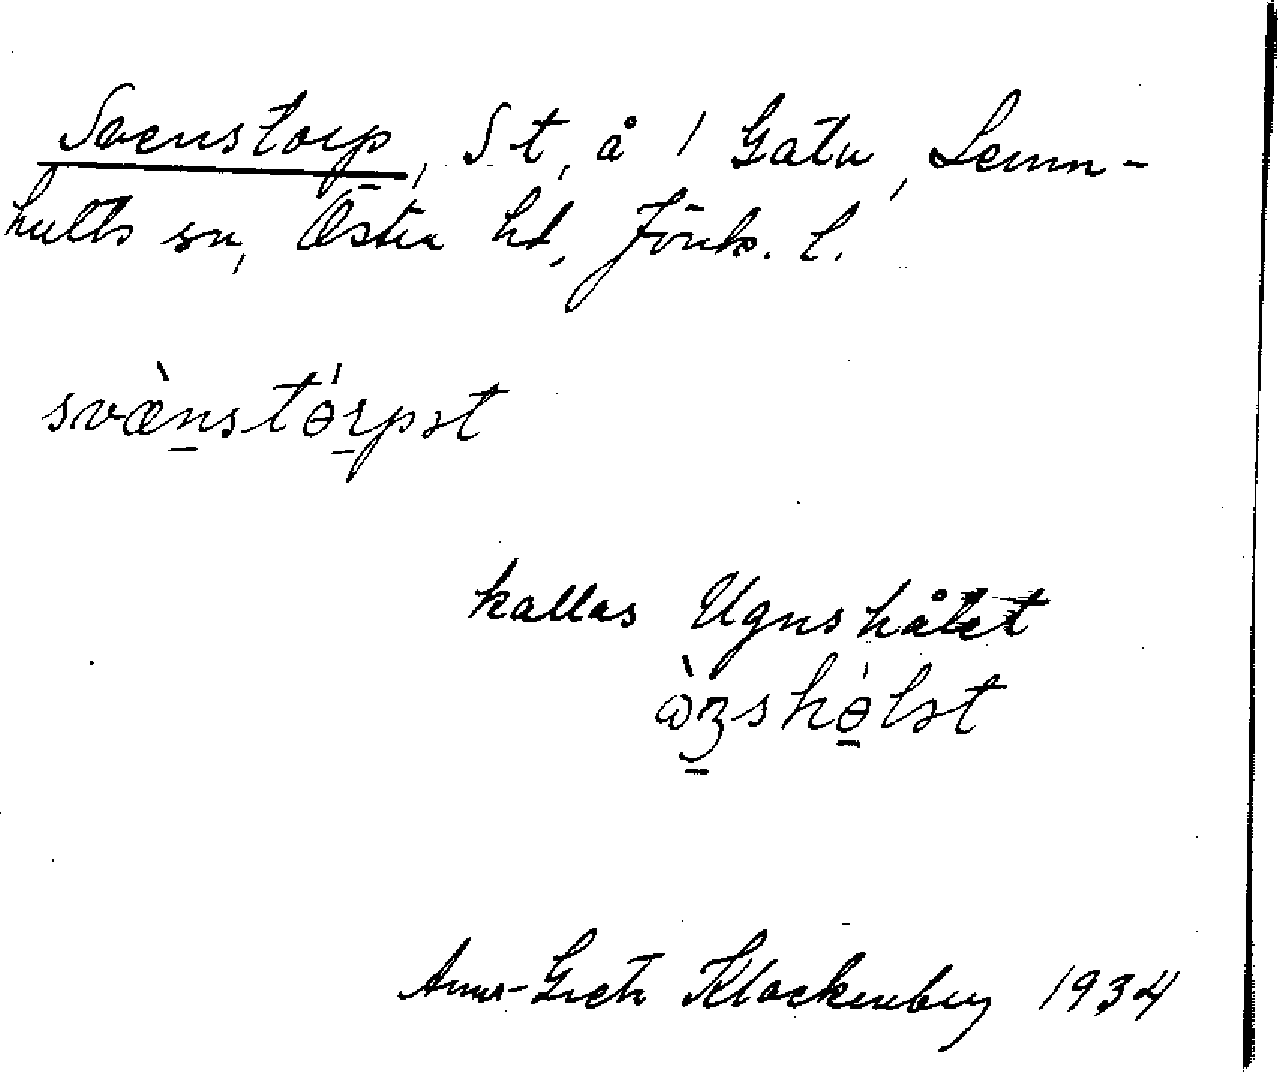 Svenstorp, St, å 1 Gatu, Lemn-
hults sn, Östra hd, Jönk. l.
svæ̀nstɵ́rpət
kallas Ugnshålet
ɷ̀ꜧshɵ́lət
Anna-Greta Klockenberg 1934